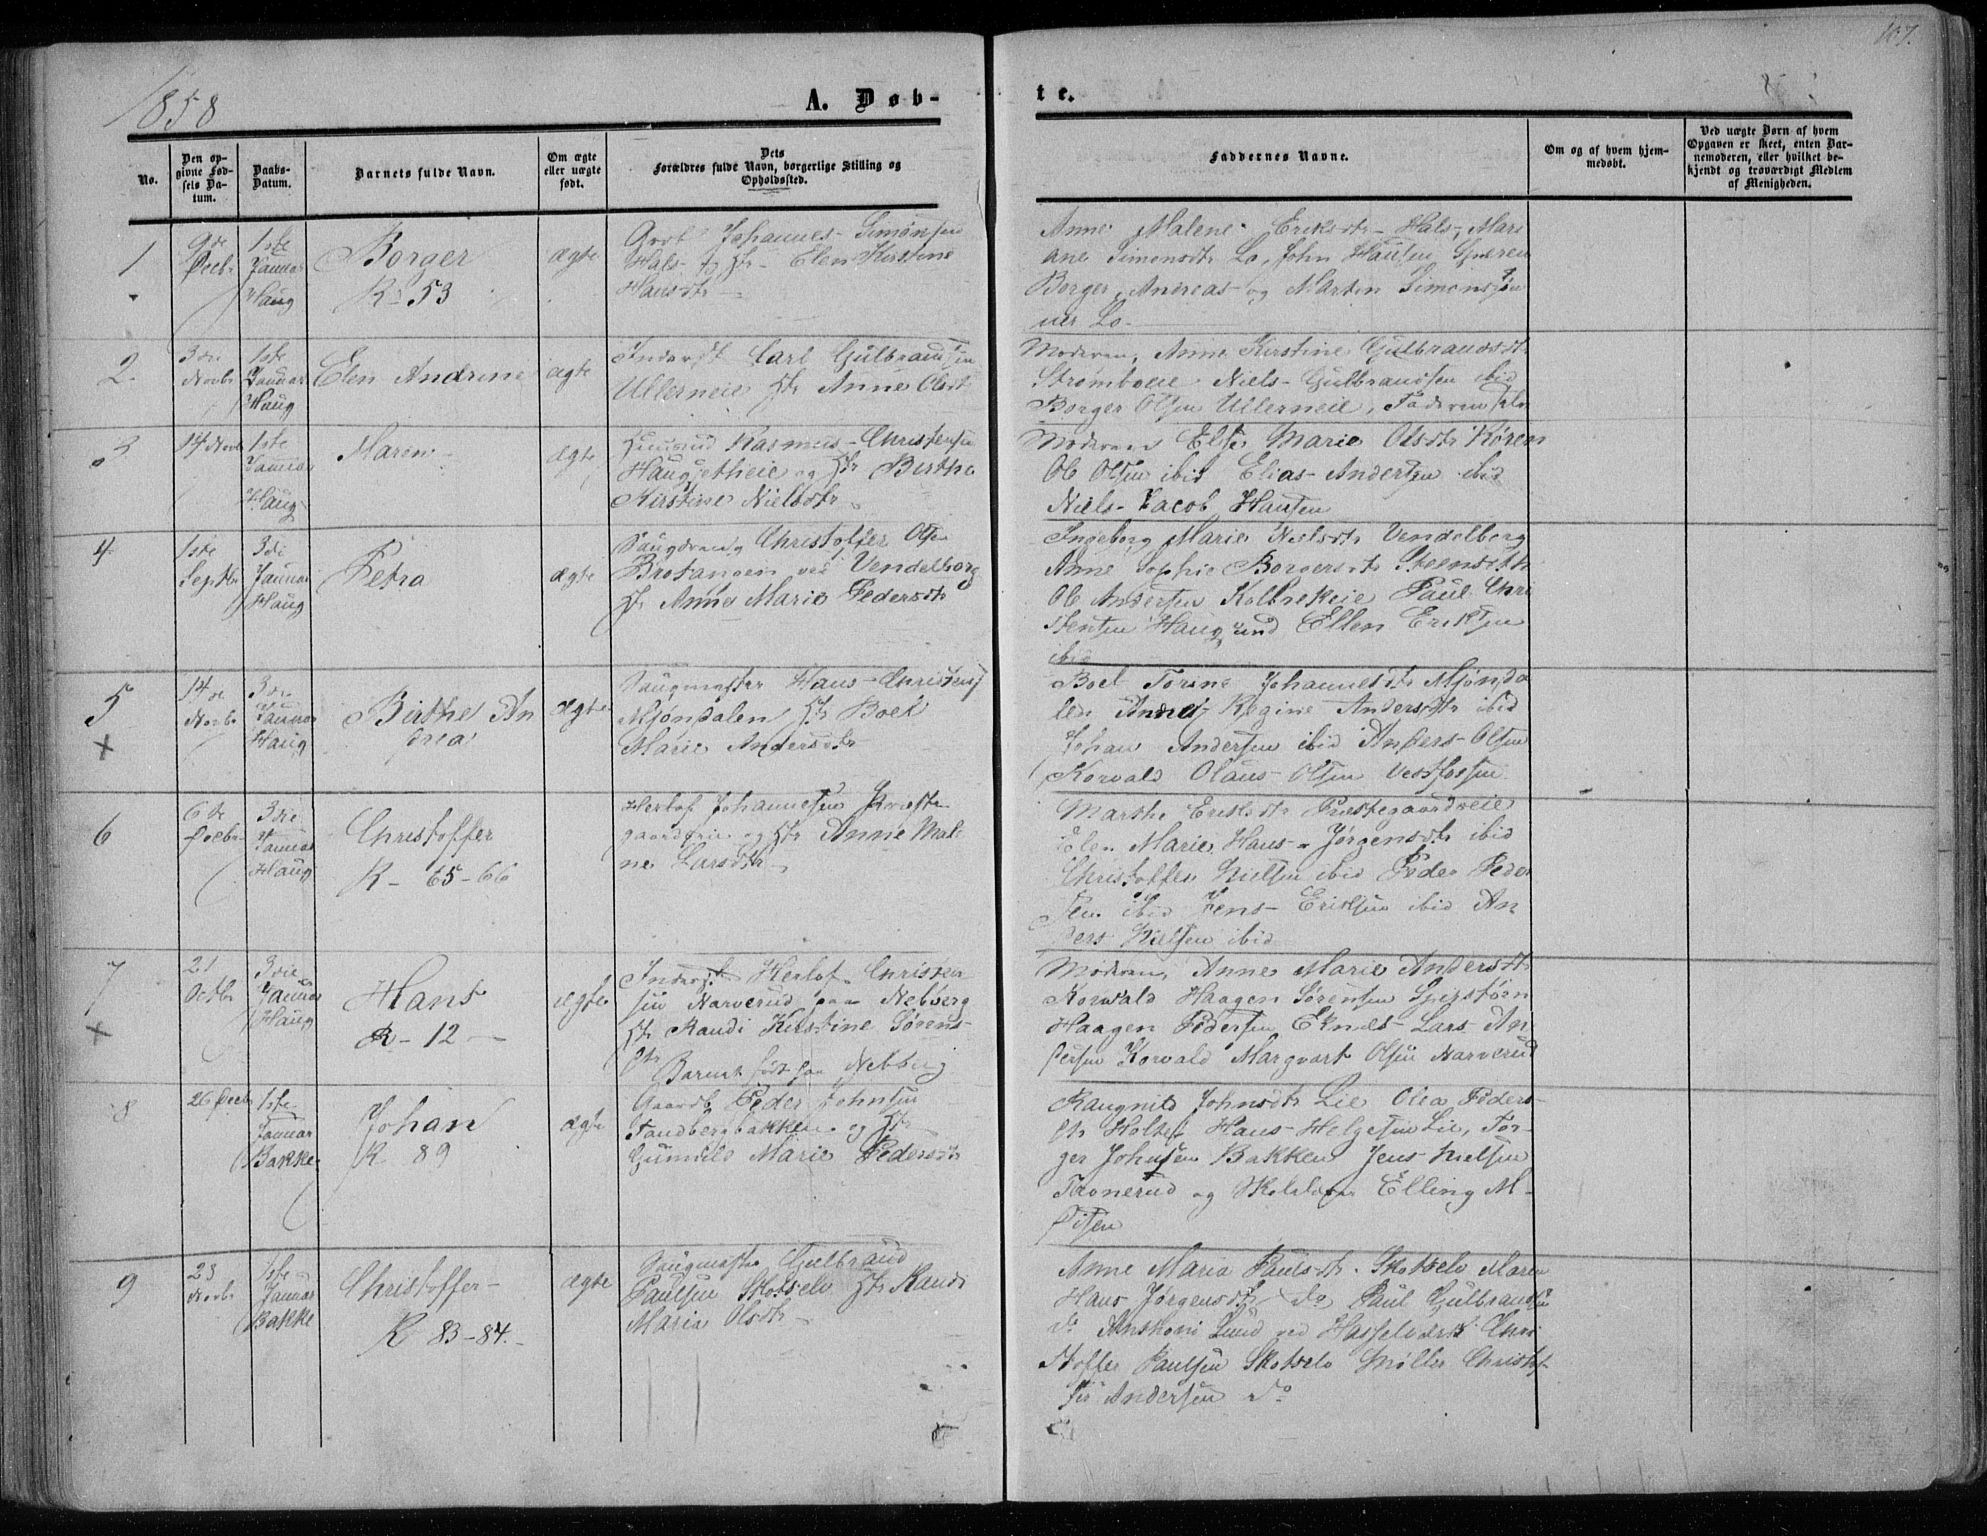 1858
A. Døb-
te.
107.
No.
Den op-
givne Fød-
sels Da-
tum.
Daabs-
Datum.
Barnets fulde Navn.
Om ægte
eller uægte
født.
Dets
Forældres fulde Navn, borgerlige Stilling og
Opholdssted.
Faddernes Navne.
Om og af hvem hjem-
medøbt.
Ved uægte Børn af hvem
Opgaven er skeet, enten Bar-
nemoderen, eller hvilket be-
kjendt og troværdigt Medlem
af Menigheden.
1
9de
Decbr
1ste
Januar
Haug
Borger
R. 53
ægte
Johannes Simonsen
Hals og Hr Elen Kirstine
Hansdtr
Anne Malene Eriksdtr Hals, Mari
ane Simonsdtr Lo, John Hansen
Borger, Andreas og Martin Simonsøn
ner Lo
2
3die
Novbr
1ste
Januar
Haug
Elen Andrine
ægte
Inderst Carl Gulbrandsen
Ullerneie Hr Anne Olsdt
Moderen, Anne Kirstine Gulbrandsdtr
Strømboeie Niels Gulbrandsen ibid
Borger Olsen Ullerneie, Faderen selv
3
14 Novbr
1ste
Januar
Haug
Maren
ægte
Rasmus Christensen
og Hr Birthe
Kirstine Nielsdtr
Moderen Else Marie Olsdtr Køren
Ole Olsen ibid Elias Andersen ibid
Niels Jacob Hansen
4
1ste
Septbr
3die
Januar
Haug
Petra
ægte
Saugdreng Christoffer Olsen
Brotangen ved Vendelborg
Hr Anne Marie Pedersdtr
Ingeborg Marie Nielsdtr Vendelborg
Anne Sophie Borgersdtr Steensæth
Ole Andersen Kolbrekeie Paul Chri
stensen Haugsund Ellen Eriksen
ibid
5
14de
Novbr
3die
Januar
Haug
Birthe An
drea
ægte
Saugmester Hans Christens
Mjøndalen Hr Boel
Marie Andersdtr
Boel Torine Johannesdtr Mjønda
len Anne Regine Andersdtr ibid
Johan Andersen ibid Anders Olsen
Korvald Olaus Olsen Vestfossen
6
6te
Decbr
3die
Januar
Haug
Christoffer
R - 65 - 66
Herlof Johannesen Præste
gaardseie og Hr Anne Male
ne Larsdtr
Marthe Eriksdtr Præstegaardseie
Elen Marie Hans Jørgensdtr ibid
Christoffer Nielsen ibid Peder Peder
sen ibid Jens Eriksen ibid An
ders Nielsen ibid
7
21
Octbr
3die
Januar
Haug
Hans
R - 12
ægte
Inderst Herlof Christen
sen Narverud paa Nebberg
Hr Randi Kirstine Sørens
dtr Barnet født paa Nebberg
Moderen, Anne Marie Andersdtr
Korvald Haagen Sørensen
Haagen Pedersen Eknæs Lars An
dersen Korvald Margvart Olsen Narverud
8
26 Decbr
1ste
Januar
Bakke
Johan
R 89
ægte
Gaardb. Peder Johnsen
Sandbergbakken og Hr
Gunnild Marie Pedersdtr
Raugnild Johnsdtr Lie Olea Peders
dtr Holte Hans Helgesen Lie, Tor
ger Johnsen Bakken Jens Nielsen
og Skolelærer Elling M
9
23
Novbr
1ste
Januar
Bakke
Christoffer
R 83-84.
ægte
Saugmester Gulbrand
Paulsen Skotselv Hr Randi
Maria Olsdtr
Anne Maria Paulsdtr Skotselv Maren
Hans Jørgensdtr do Paul Gulbrandsen
do Anthoni Lund ved Hasselværk Chri
stoffer Paulsen Skotselv Møller Christof
fer Andersen do